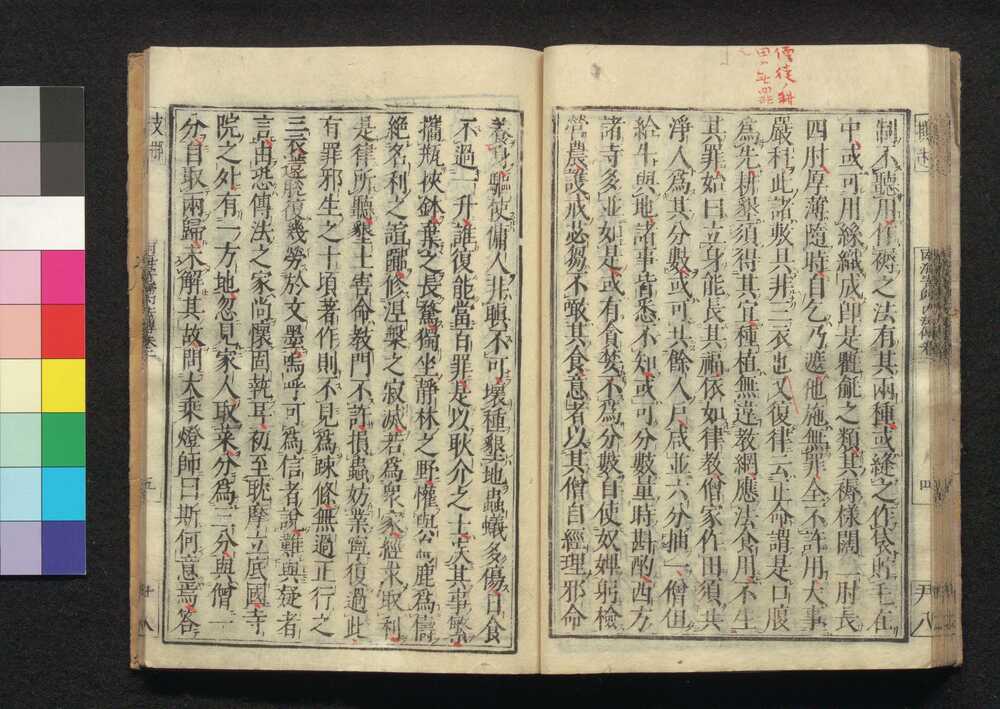 僧徒ノ耕
田ハ無罪
制不聽用作褥之法有其兩種或縫之作袋貯毛在
中或可用緣織成即是氍毹之類其褥樣闊二肘長
四肘厚薄隨時自乞乃遮他施無罪全不許用大事
嚴科此諸敷具非三衣也又復律云正命謂是口腹
為先耕墾須得其宜種植無違教網應法食用不生
其罪始曰立身能長其福依如律教僧家作田須共
淨人為其分數或可共餘人戶咸並六分抽一僧但
給牛與地諸事皆悉不知或可分數量時斟酌西方
諸寺多並如是或有貪婪不為分數自使奴婢躬檢
營農護戒苾芻不噉其食意者以其僧自經理邪命
養身驅使傭人非瞋不可壞種墾地蟲蟻多傷日食
不過一升誰復能當百罪是以耿介之士疾其事繁
攜瓶挾鉢棄之長騖獨坐靜林之野懽與公鹿為儔
絕名利之諠囂修涅槃之寂滅若為眾家經求取利
是律所聽墾土害命教門不許損蟲妨業寧復過此
有罪邪生之十頃著作則不見為疎條無過正行之
三衣還復幾勞於文墨嗚呼可為信者說難與疑者
言由恐傳法之家尚懷固執耳初至耽摩立底國寺
院之外有一方地忽見家人取菜分為三分與僧一
分自取兩歸未解其故問大乘燈師曰斯何意焉答